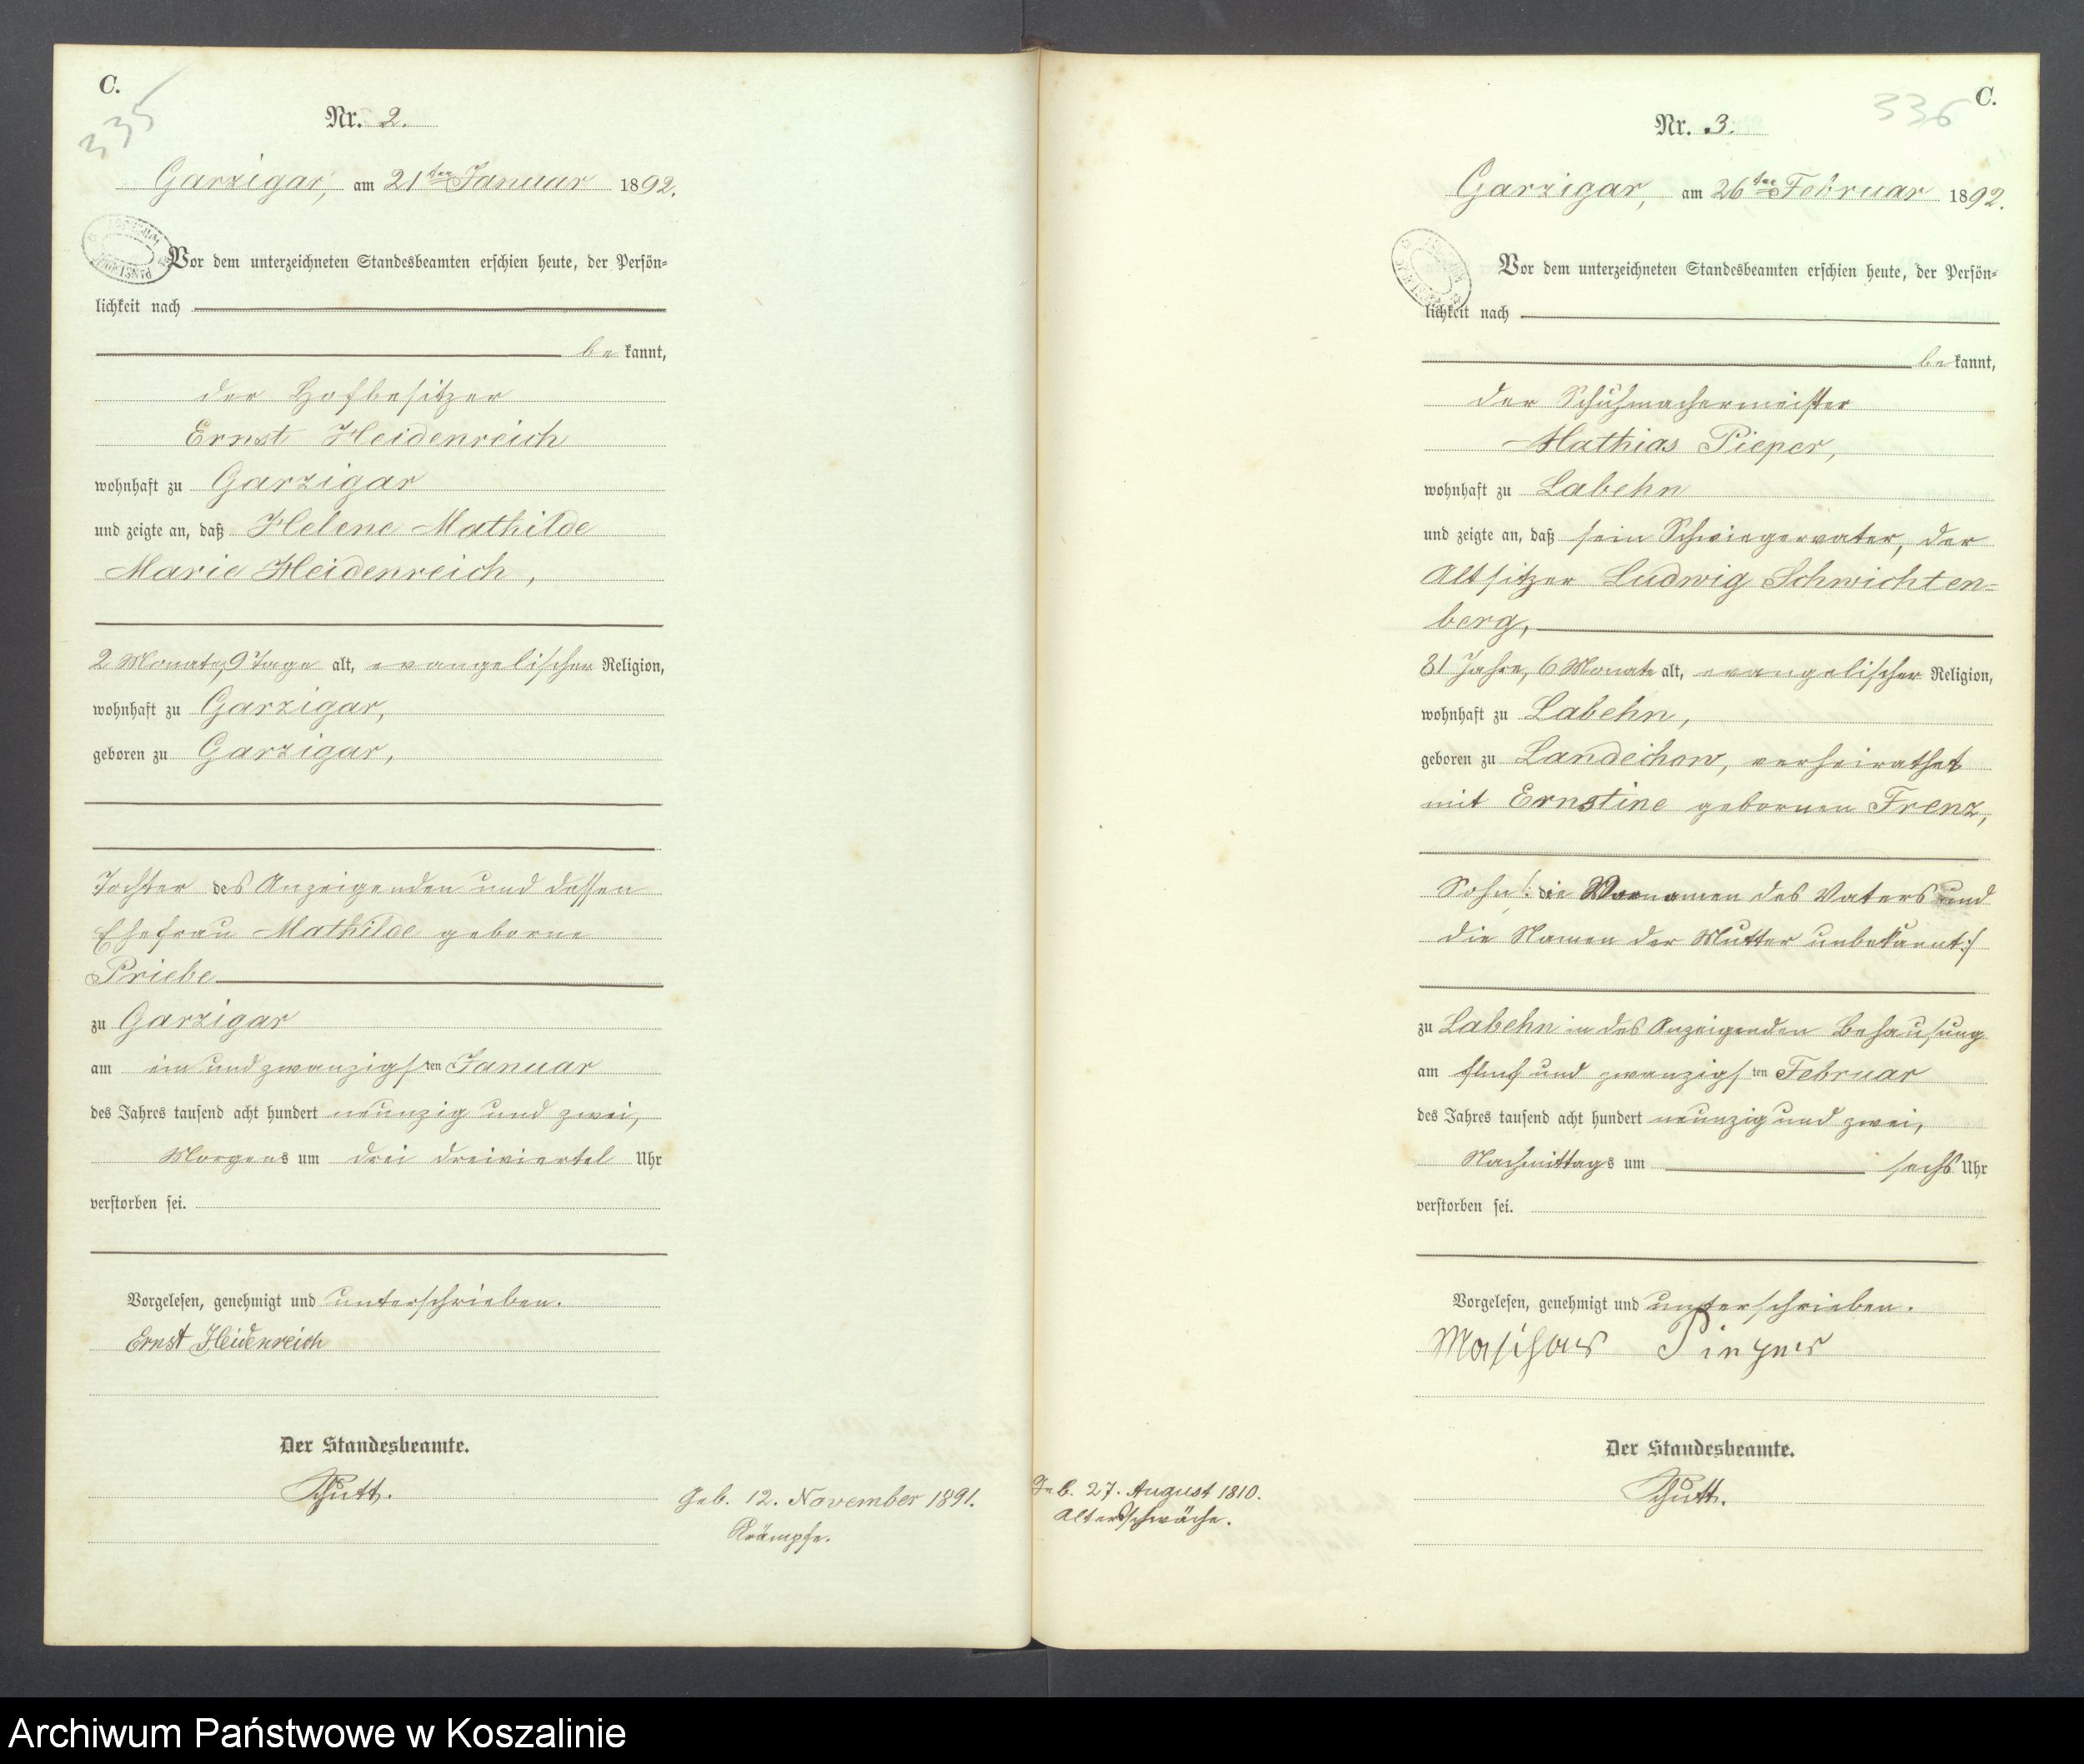 C.
335
Nr. 2.
Garzigar, am 21ten Januar 1892.
Vor dem unterzeichneten Standesbeamten erschien heute, der Persön-
lichkeit nach
be kannt,
der Hofbesitzer
Ernst Heidenreich
wohnhaft zu Garzigar
und zeigte an, daß Helene Mathilde
Marie Heidenreich,
2 Monate, 9 Tage alt, evangelischer Religion,
wohnhaft zu Garzigar,
geboren zu Garzigar,
Tochter des Anzeigenden und dessen
Ehefrau Mathilde geborne
Priebe
zu Garzigar
am ein und zwanzigsten Januar
des Jahres tausend acht hundert neunzig und zwei,
Morgens um drei dreiviertel Uhr
verstorben sei.
Vorgelesen, genehmigt und unterschrieben.
Ernst Heidenreich
Der Standesbeamte.
Schutt.
Geb. 12. November 1891.
Krämpfe.
C.
336
Nr. 3.
Garzigar, am 26ten Februar 1892.
Vor dem unterzeichneten Standesbeamten erschien heute, der Persön-
lichkeit nach
be kannt,
der Schuhmachermeister
Mathias Pieper,
wohnhaft zu Labehn
und zeigte an, daß sein Schwiegervater, der
Altsitzer Ludwig Schwichten-
berg,
81 Jahre, 6 Monate alt, evangelischer Religion,
wohnhaft zu Labehn,
geboren zu Landechow, verheirathet
mit Ernstine gebornen Frenz,
Sohn /: die Vornamen des Vaters und
die Namen der Mutter unbekannt :/
zu Labehn in des Anzeigenden Behausung
am fünf und zwanzigsten Februar
des Jahres tausend acht hundert neunzig und zwei,
Nachmittags um sechs Uhr
verstorben sei.
Vorgelesen, genehmigt und unterschrieben.
Mathias Pieper
Der Standesbeamte.
Schutt.
Geb. 27. August 1810.
Altersschwäche.
Archiwum Państwowe w Koszalinie